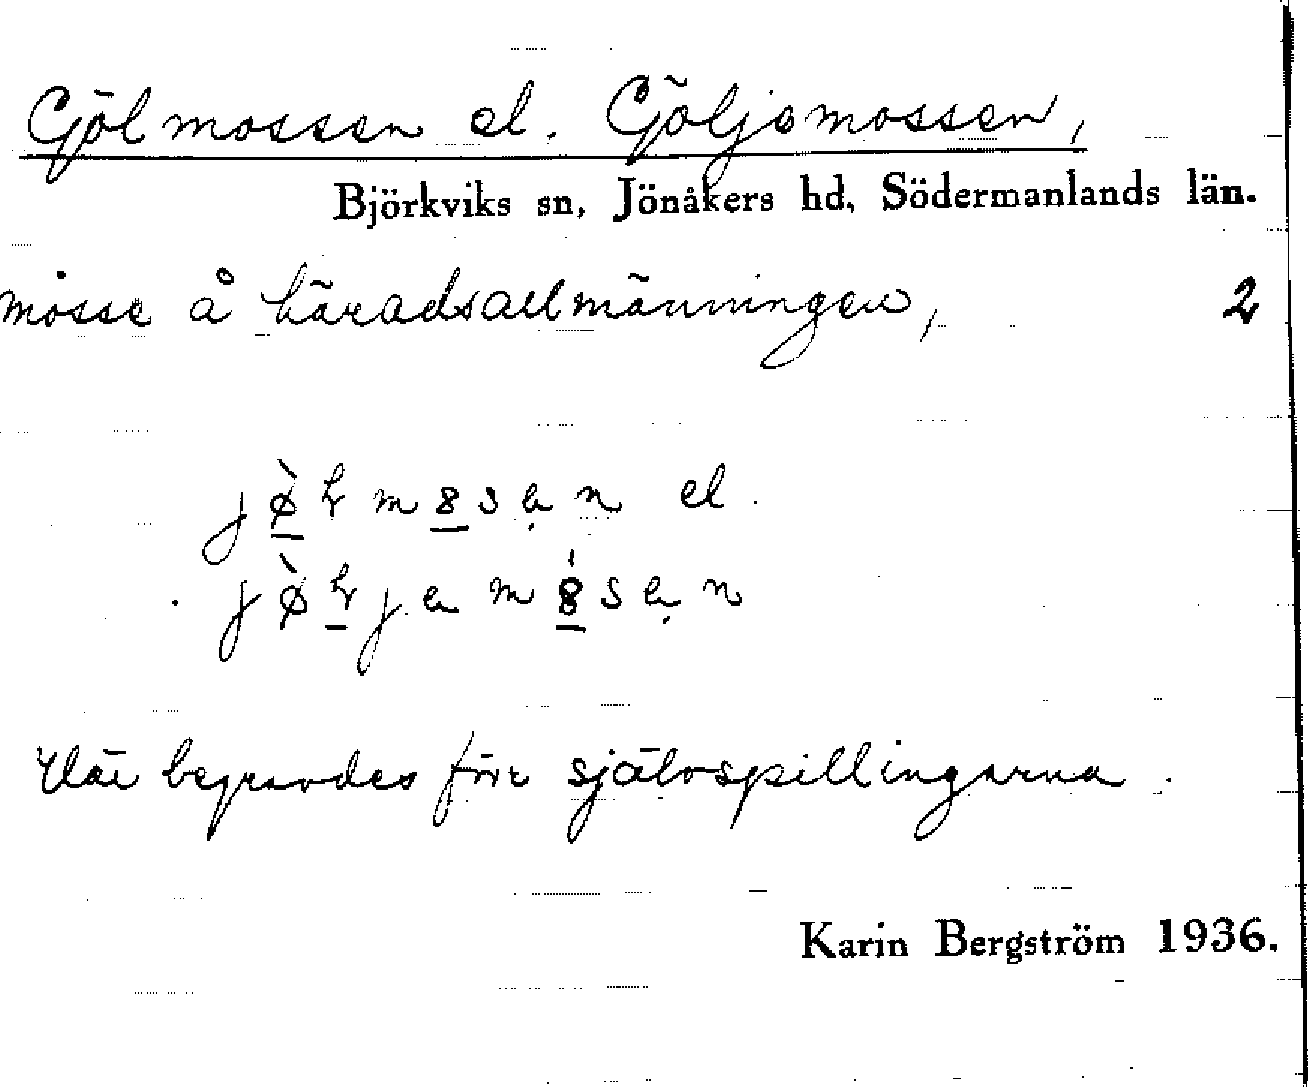 Gölmossen el. Göljemossen,
Björkviks sn, Jönåkers hd, Södermanlands län.
mosse å häradsallmänningen, 2
el.
Där begravdes förr självspillingarna.
Karin Bergström 1936.